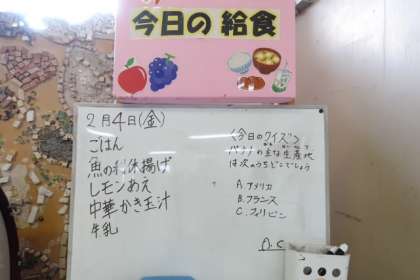 今日の給食
2月4日(金)
ごはん
魚の利休揚げ
レモンあえ
中華かき玉汁
牛乳
〈今日のクイズ〉
バナナの主な生産地
は次のうちどこでしょう
A.アメリカ
B.フランス
C.フィリピン
A.C